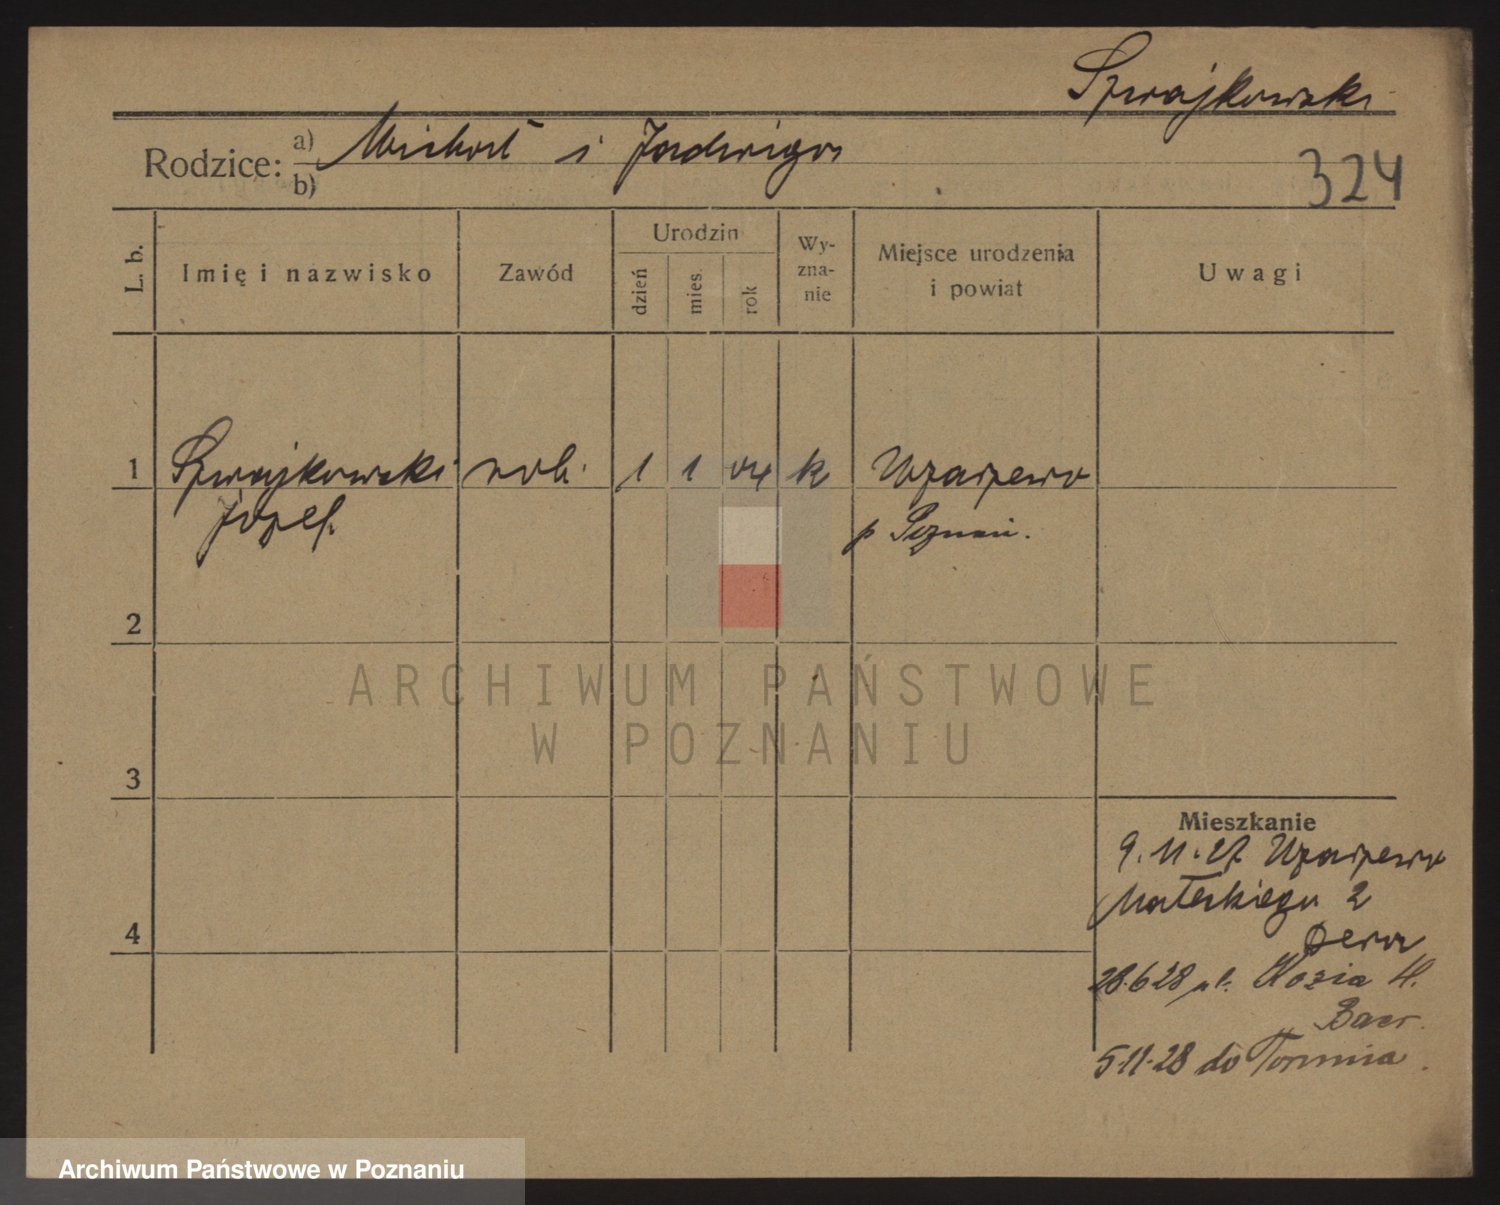 Szwajkowski
Rodzice: a) Michał i Jadwiga
b)
324
L. b.
Imię i nazwisko
Zawód
Urodzin
dzień
mies.
rok
Wy-
zna-
nie
Miejsce urodzenia
i powiat
Uwagi
1 Szwajkowski rob. 1 1 04 k
Józef. p Poznań.
2
3
4
Mieszkanie
9.11.27
2
28.6.28 ul. Kozia
Baer.
5.11.28 do Torunia.
ARCHIWUM PAŃSTWOWE
W POZNANIU
Archiwum Państwowe w Poznaniu